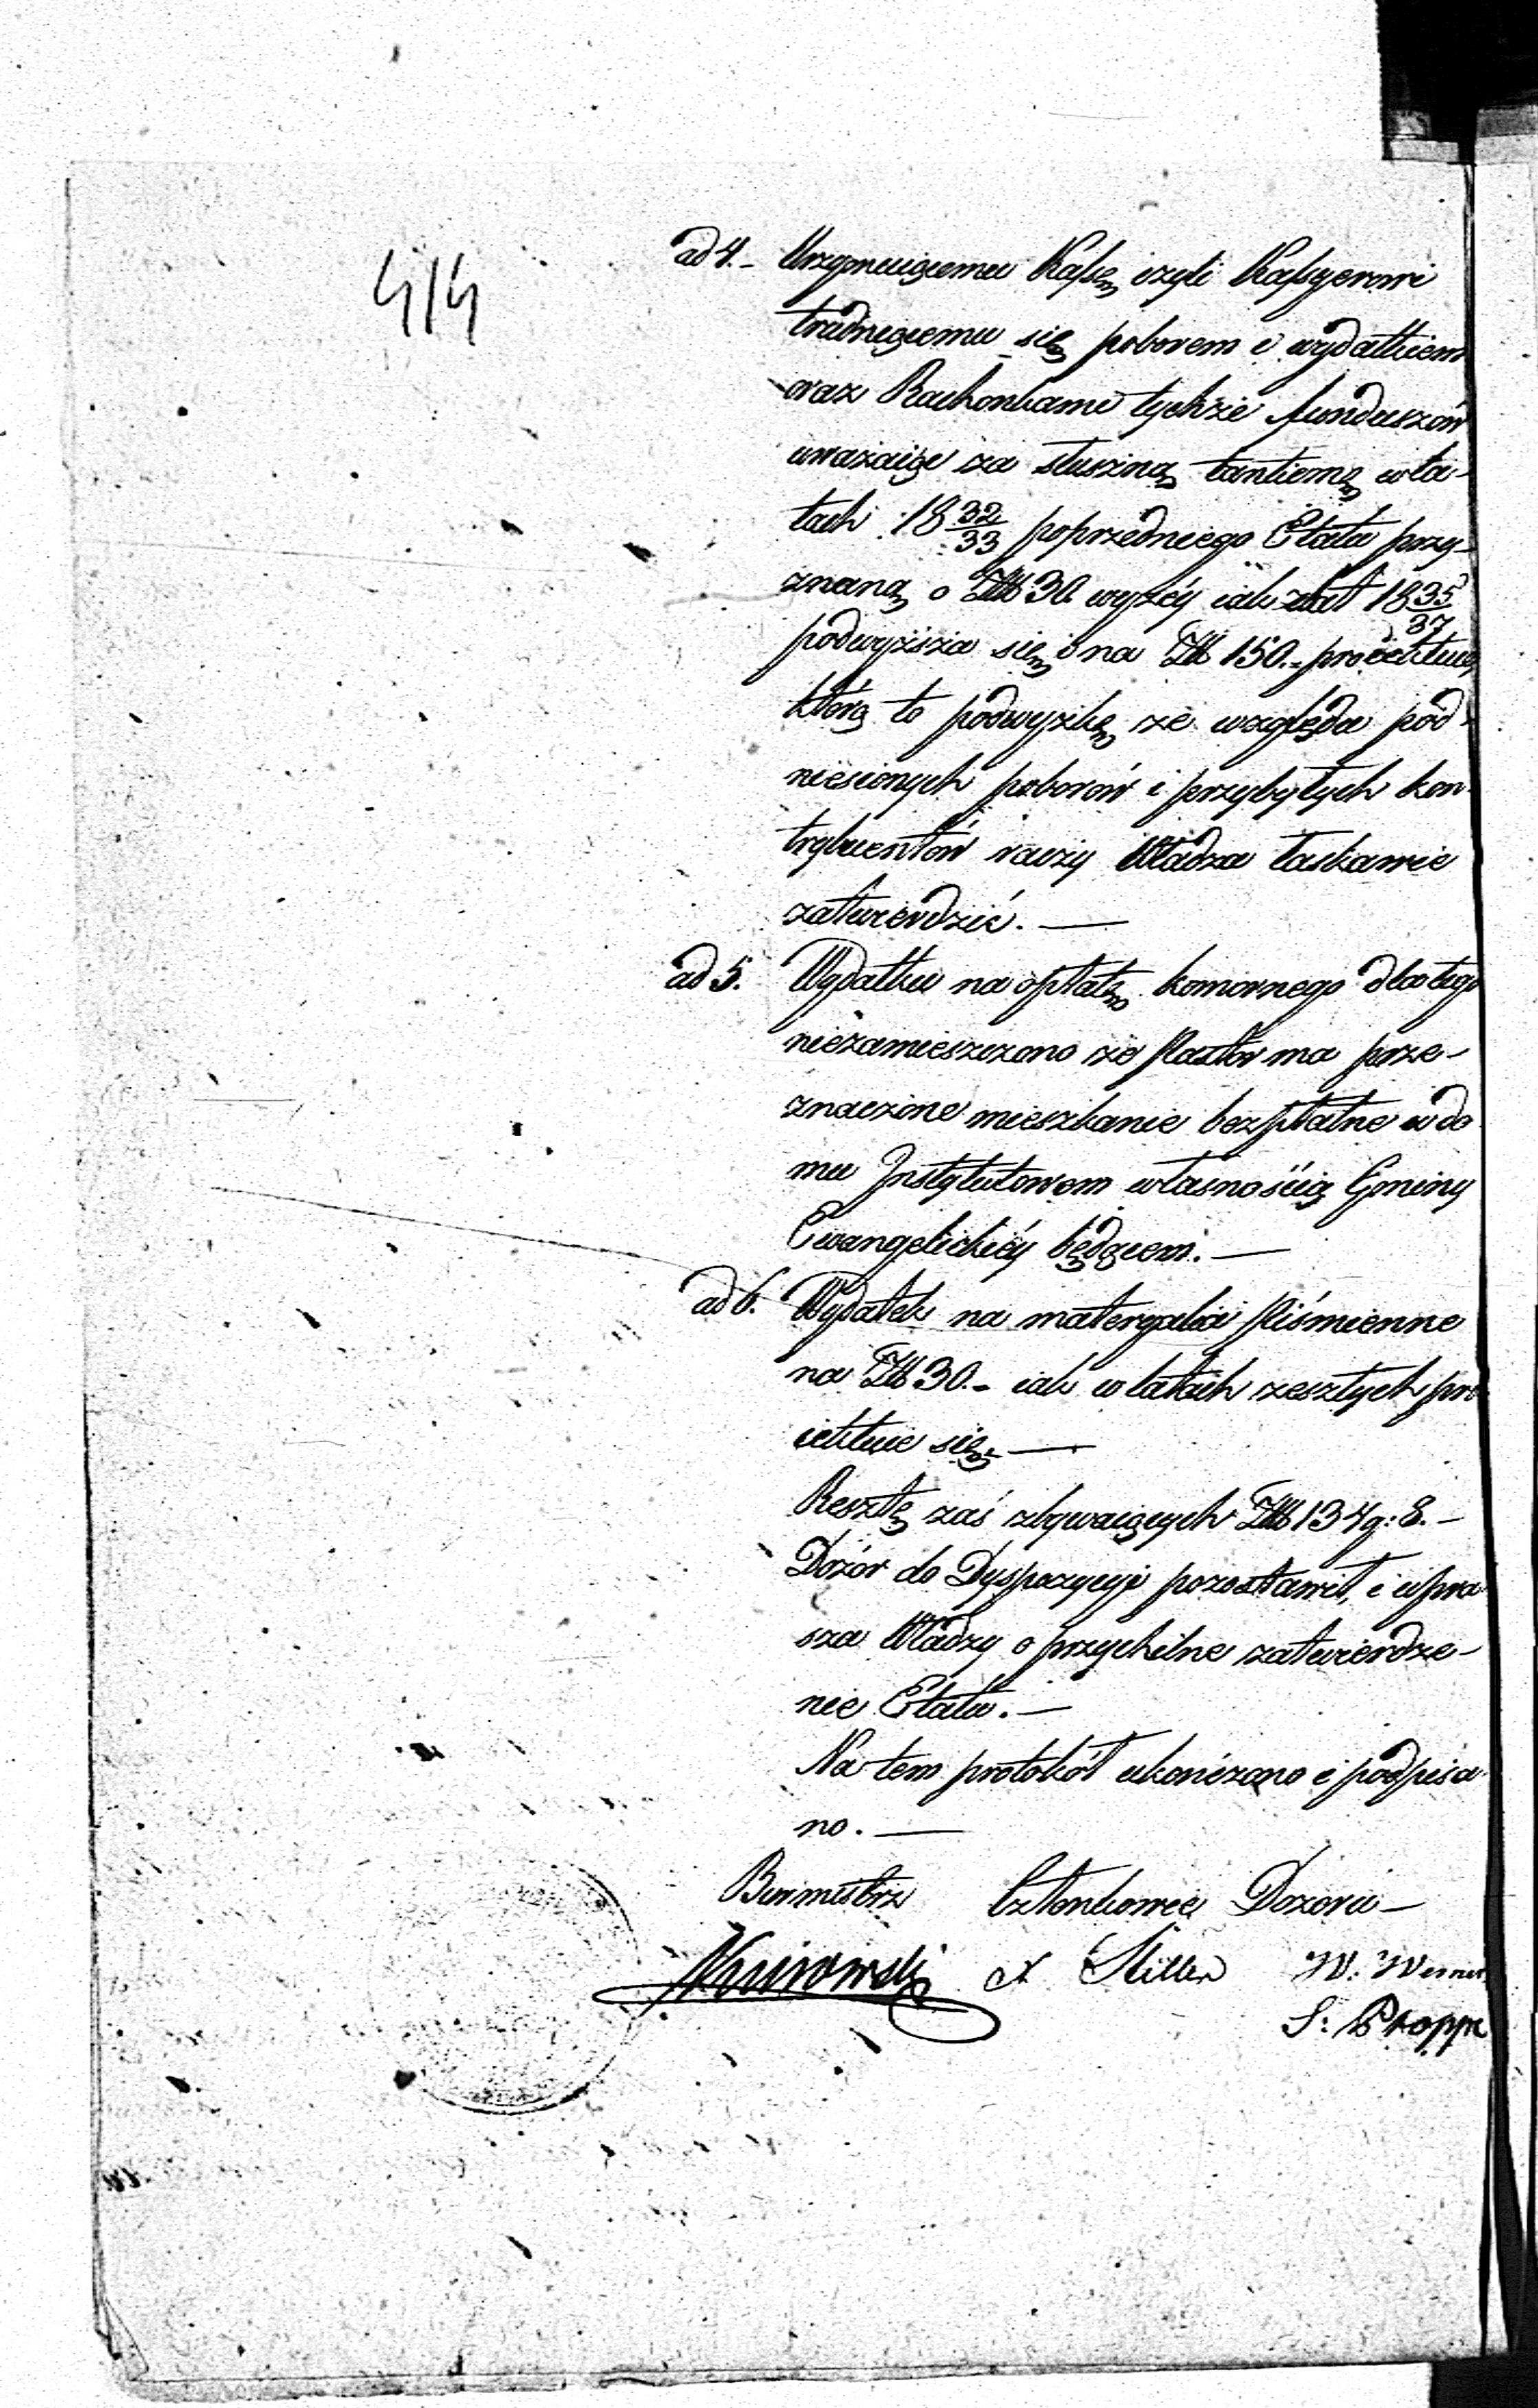 414
ad 4. - Utrzymuiącemu Kassę czyli Kassyerowi
trudniącemu się poborem i wydatkiem
oraz Rachonkami tychże funduszów
uważaiąc za słuszną tantiemę w la-
tach 18 32/33 poprzedniego Etatu przy-
znaną o Złł 30. wyżéy iak z lat 18 35/37
podwyższa się i na Złł 150.- proiektuie,
którą to podwyżkę ze względu pod-
niesionych poborów i przybyłych kon-
trybuentów raczy Władza łaskawie
zatwierdzić. —
ad 5. Wydatku na opłatę komornego dla tego
niezamieszczono że Pastor ma prze-
znaczone mieszkanie bezpłatne w do
mu Instytutowem własnością Gminy
Ewangelickiéy będącem. —
ad 6. Wydatek na materyalia piśmienne
na Złł 30.- iak w latach zeszłych pro
iektuie się. —
Resztę zaś zbywaiących Złł 134 g: 8. -
Dozór do Dyspozycyi pozostawił, i upra
sza Władzy o przychilne zatwierdze-
nie Etatu. —
Na tem protokół ukończono i podpisa
no. —
Burmistrz Członkowie Dozoru —
Stiller W: Werner
S: Proppe